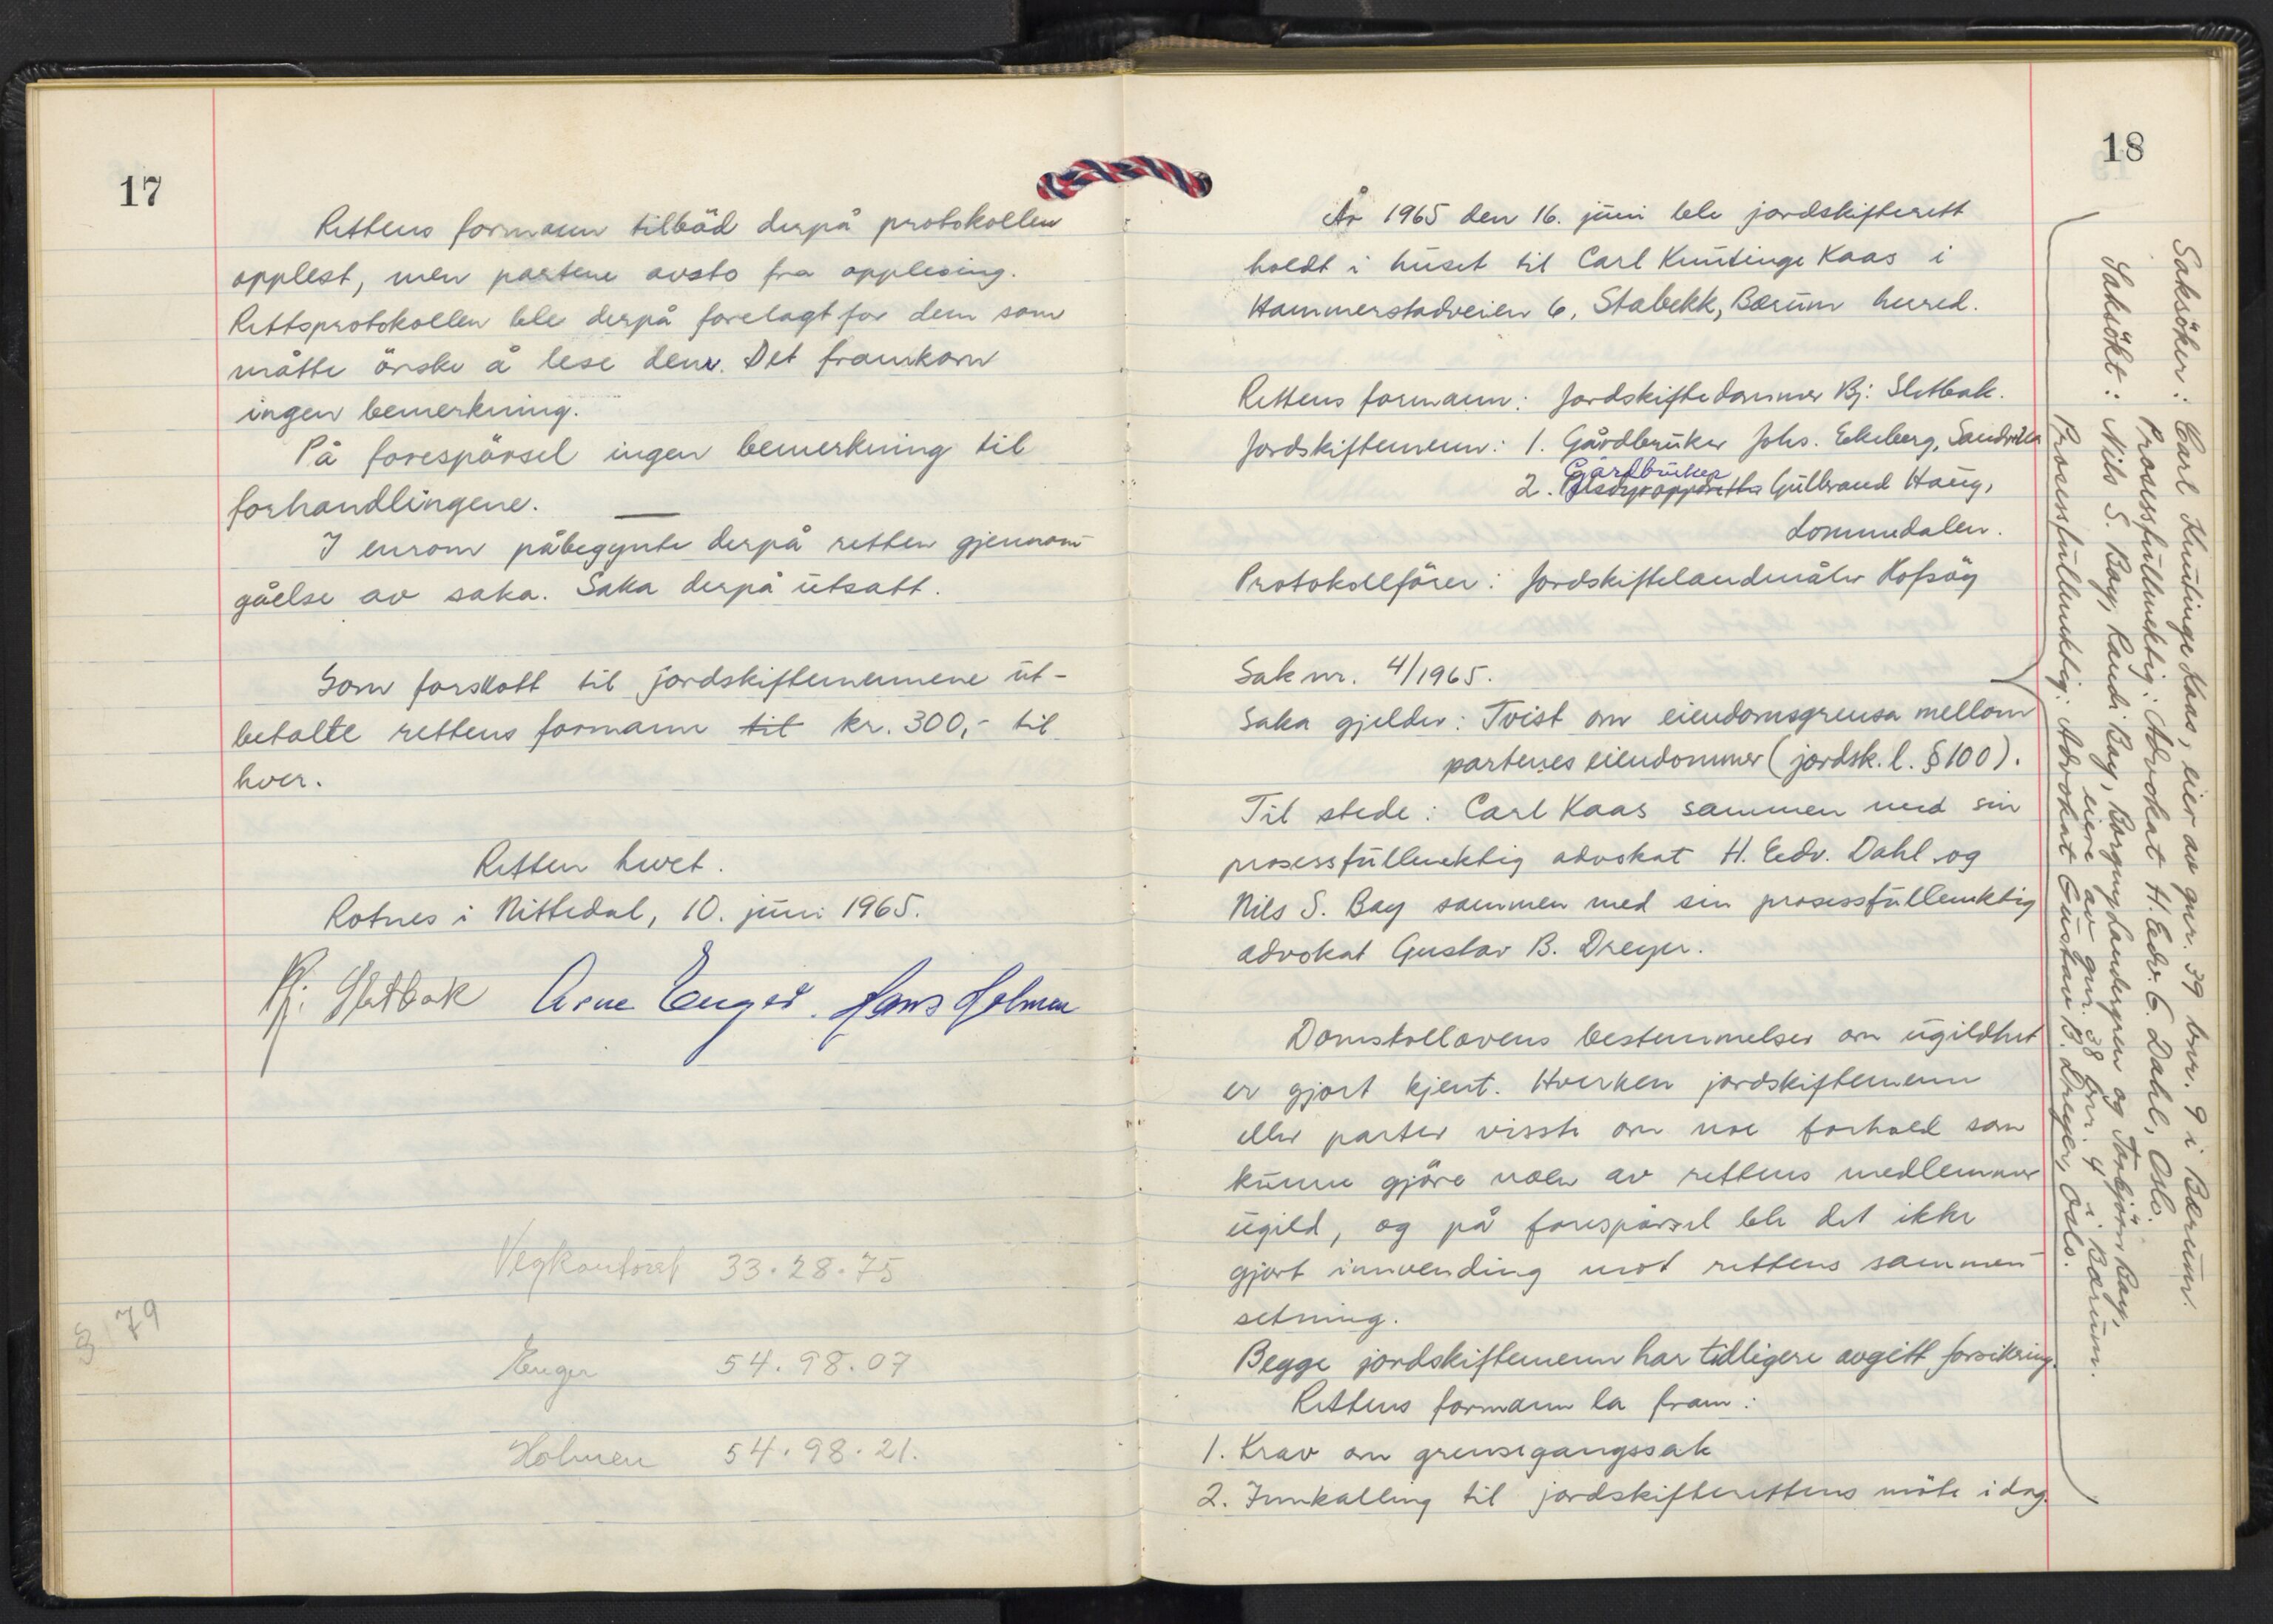 17
Rettens formann tilböd derpå protokollen
opplest, men partene avsto fra opplesing.
Rettsprotokollen ble derpå forelagt for dem som
måtte önske å lese den. Det framkom
ingen bemerkning.
På forespörsel ingen bemerkning til
forhandlingene.
I enrom påbegynte derpå retten gjennom-
gåelse av saka. Saka derpå utsatt.
Som forskott til jordskiftemennene ut-
betalte rettens formann til kr. 300,- til
hver.
Retten hevet.
Rotnes i Nittedal, 10. juni 1965.
Bj. Sletbak Arne Enger. Hans Holmen
Vegkontoret 33.28.75
§ 79
Enger 54.98.07
Holmen 54.98.21.
18
År 1965 den 16. juni ble jordskifterett
holdt i huset til Carl Knutinge Kaas i
Hammerstadveien 6, Stabekk, Bærum herred.
Rettens formann: Jordskiftedommer Bj. Sletbak.
Jordskiftemenn: 1. Gårdbruker Johs. Ekeberg, Sandvika
Gårdbruker
2. Gulbrand Haug,
Lommedalen.
Protokollförer: Jordskiftelandmåler Hofsöy
Sak nr. 4/1965.
Saka gjelder: Tvist om eiendomsgrensa mellom
partenes eiendommer (jordsk.l. § 100).
Til stede: Carl Kaas sammen med sin
prosessfullmektig advokat H. Edv. Dahl og
Nils S. Bay sammen med sin prosessfullmektig
advokat Gustav B. Dreyer.
Domstollovens bestemmelser om ugildhet
er gjort kjent. Hverken jordskiftemenn
eller parter visste om noe forhold som
kunne gjöre noen av rettens medlemmer
ugild, og på forespörsel ble det ikke
gjort innvending mot rettens sammen-
setning.
Begge jordskiftemenn har tidligere avgitt forsikring.
Rettens formann la fram:
1. Krav om grensegangssak
2. Innkalling til jordskifterettens möte idag.
Saksöker: Carl Knutinge Kaas, eier av gnr. 39 bnr. 9 i Bærum.
Prosessfullmektig: Advokat H. Edv. E. Dahl, Oslo.
Saksökt: Nils S. Bay, Randi Bay, Borgny Landergren og Torbjörn Bay,
eiere av gnr. 38 bnr. 4 i Bærum.
Prosessfullmektig: Advokat Gustav B. Dreyer, Oslo.